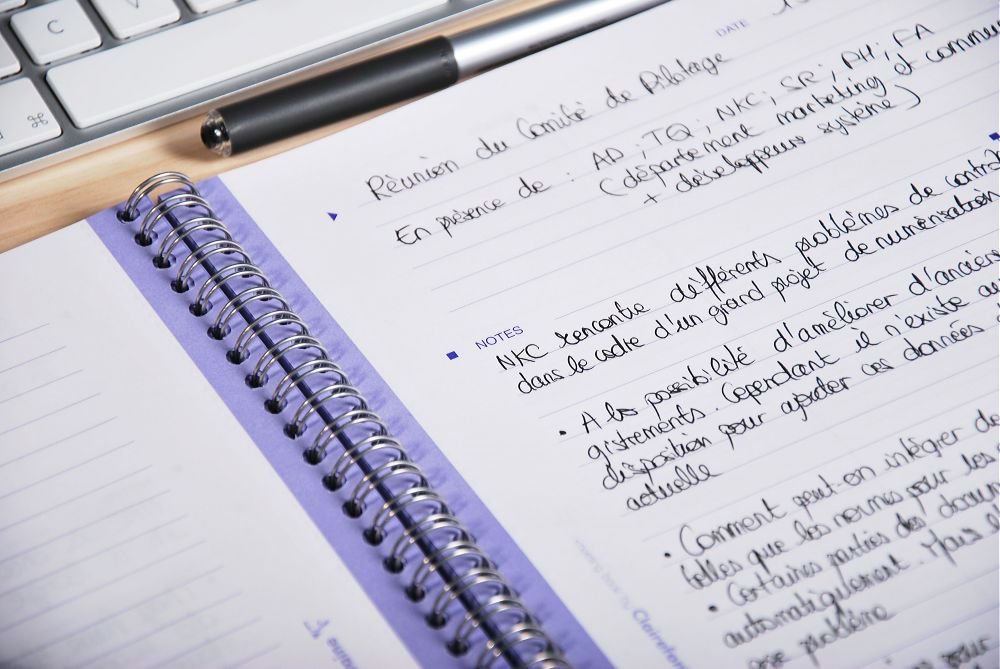 C
V
⌘
DATE
Réunion du Comité de Pilotage
En présence de : AD ; TQ ; NKC ; SR ; PH ; FA
(département marketing et commun
+ développeurs système)
NOTES
NKC rencontre différents problèmes de contrat
dans le cadre d'un grand projet de numérisation
• A la possibilité d'améliorer d'ancien
gistrements. Cependant il n'existe au
disposition pour ajouter ces données
actuelle
• Comment peut-on intégrer de
telles que les normes pour les
• Certaines parties des docum
automatiquement. Mais
problème
pour
Clairefon